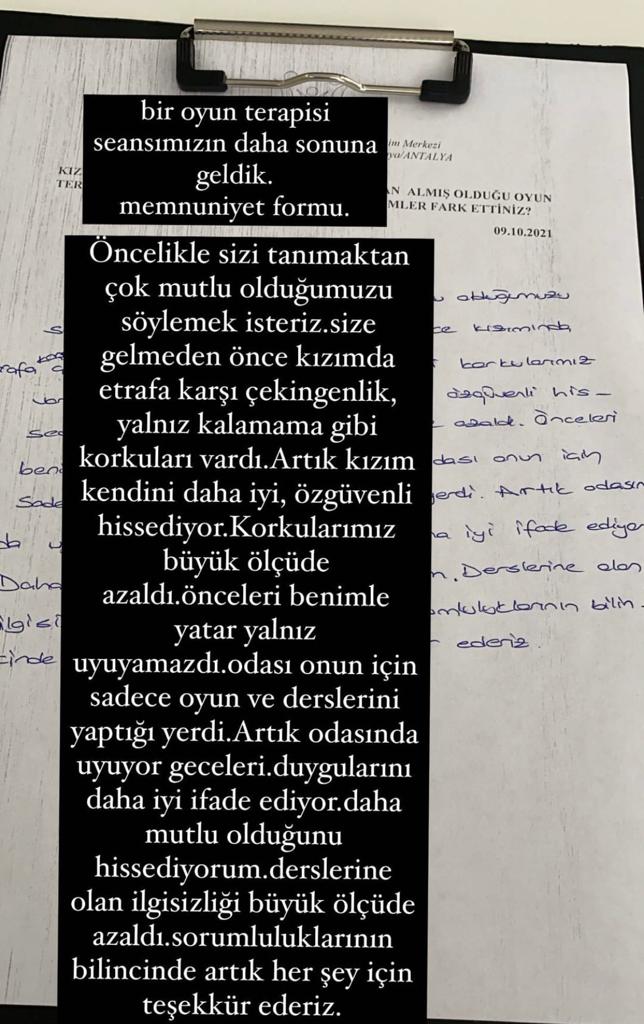 bir oyun terapisi
seansımızın daha sonuna
geldik.
memnuniyet formu.
im Merkezi
ya/ANTALYA
KIZ
TER
N ALMIŞ OLDUĞU OYUN
MLER FARK ETTİNİZ?
09.10.2021
Öncelikle sizi tanımaktan
çok mutlu olduğumuzu
söylemek isteriz.size
gelmeden önce kızımda
etrafa karşı çekingenlik,
yalnız kalamama gibi
korkuları vardı.Artık kızım
kendini daha iyi, özgüvenli
hissediyor.Korkularımız
büyük ölçüde
azaldı.önceleri benimle
yatar yalnız
uyuyamazdı.odası onun için
sadece oyun ve derslerini
yaptığı yerdi.Artık odasında
uyuyor geceleri.duygularını
daha iyi ifade ediyor.daha
mutlu olduğunu
hissediyorum.derslerine
olan ilgisizliği büyük ölçüde
azaldı.sorumluluklarının
bilincinde artık her şey için
teşekkür ederiz.
olduğumuzu
ce kızımında
rafa korkularımız
özgüvenli his-
azaldı. Önceleri
ben dası onun için
Sade yerdi. Artık odasın
iyi ifade ediyor
Daha Derslerine olan
ilgisi umluluklarının bilin
cinde ederiz.